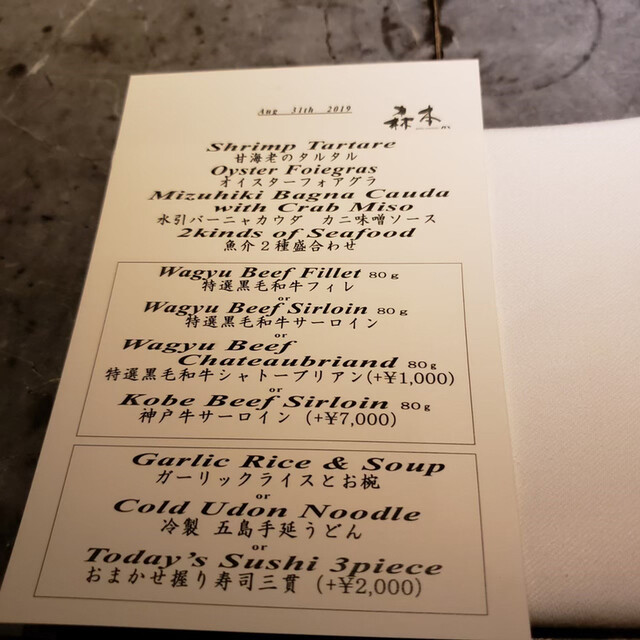 Aug 31th 2019
森本
Shrimp Tartare
甘海老のタルタル
Oyster Foiegras
オイスターフォアグラ
Mizuhiki Bagna Cauda
with Crab Miso
水引バーニャカウダ カニ味噌ソース
2kinds of Seafood
魚介２種盛合わせ
Wagyu Beef Fillet 80g
特選黒毛和牛フィレ
or
Wagyu Beef Sirloin 80g
特選黒毛和牛サーロイン
or
Wagyu Beef
Chateaubriand 80g
特選黒毛和牛シャトーブリアン(+¥1,000)
or
Kobe Beef Sirloin 80g
神戸牛サーロイン (+¥7,000)
Garlic Rice & Soup
ガーリックライスとお椀
or
Cold Udon Noodle
冷製 五島手延うどん
or
Today's Sushi 3piece
おまかせ握り寿司三貫 (+¥2,000)